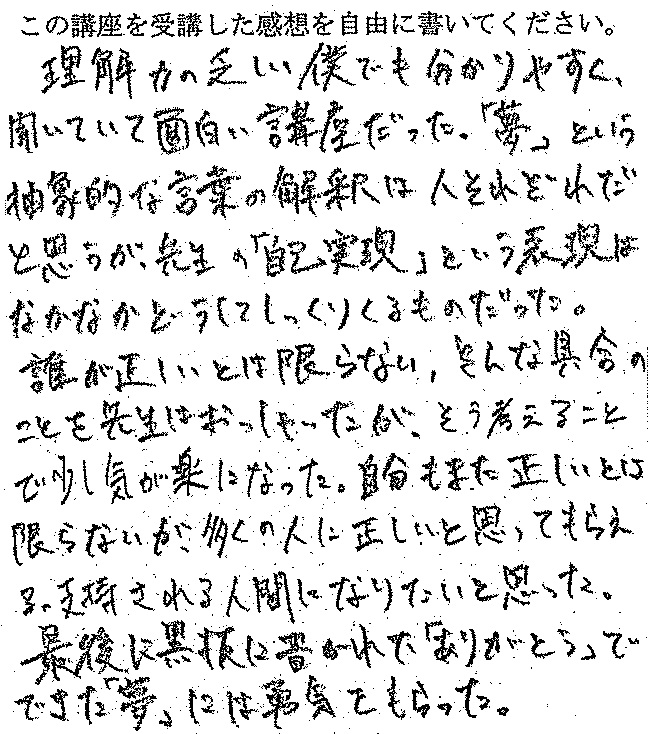 この講座を受講した感想を自由に書いてください。
理解力の乏しい僕でも分かりやすく、
聞いていて面白い講座だった。「夢」という
抽象的な言葉の解釈は人それぞれだ
と思うが、先生の「自己実現」という表現は
なかなかどうしてしっくりくるものだった。
誰が正しいとは限らない、そんな具合の
ことを先生はおっしゃったが、そう考えること
で少し気が楽になった。自分もまた正しいとは
限らないが、多くの人に正しいと思ってもらえ
る、支持される人間になりたいと思った。
最後に黒板に書かれた「ありがとう」で
できた「夢」には勇気をもらった。